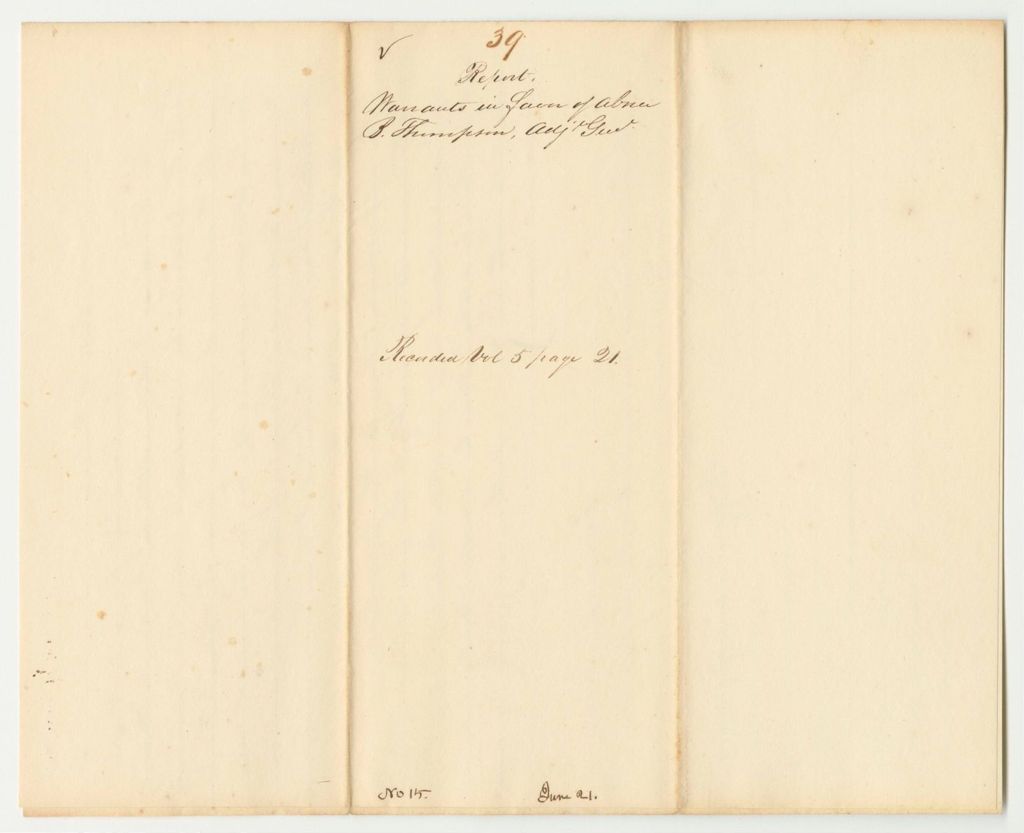 ✓ 39
Report.
Warrants in favor of Abner
B. Thompson, Adjt Genl.
Recorded Vol 5 page 21.
No 15. June 21.